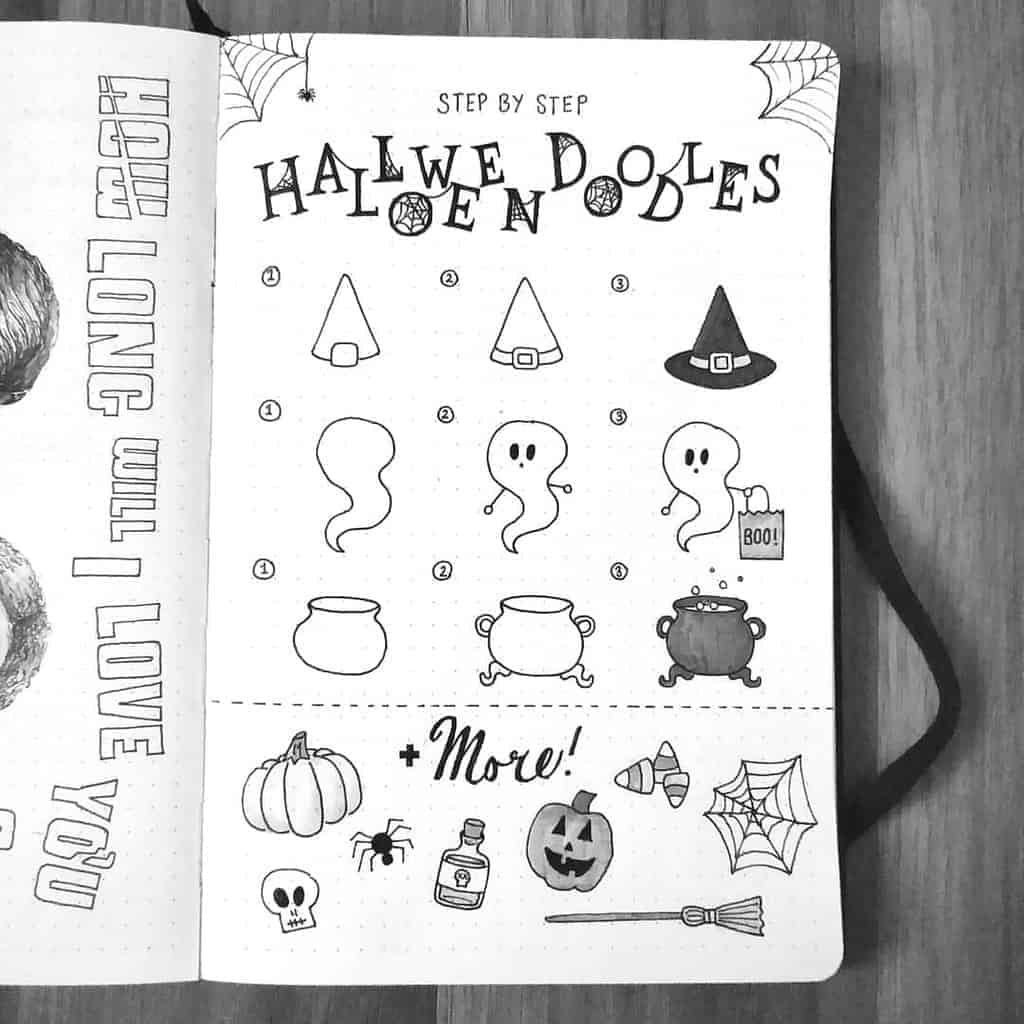 HOW LONG WILL I LOVE YOU
STEP BY STEP
HALLOWEEN DOODLES
1 2 3
1 2 3
BOO!
1 2 3
+ More!